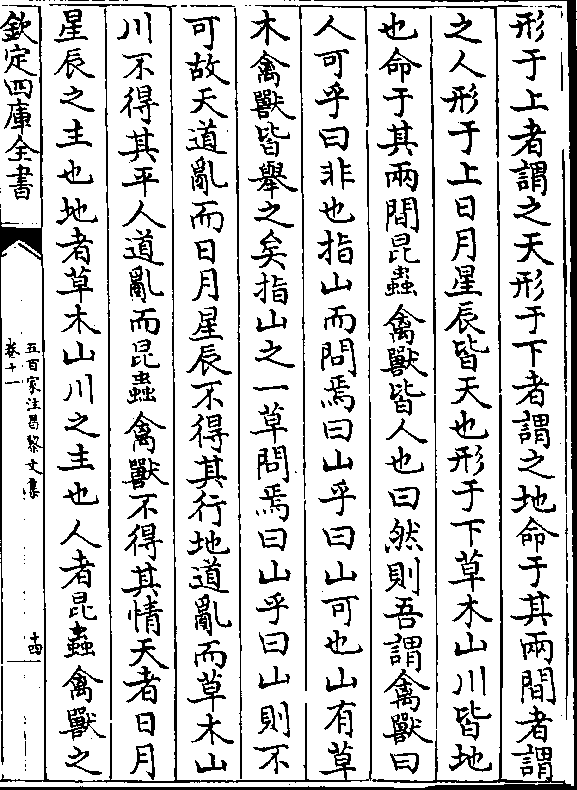 形于上者謂之天形于下者謂之地命于其兩間者謂
之人形于上日月星辰皆天也形于下草木山川皆地
也命于其兩間昆蟲禽獸皆人也曰然則吾謂禽獸曰
人可乎曰非也指山而問焉曰山乎曰山可也山有草
木禽獸皆舉之矣指山之一草問焉曰山乎曰山則不
可故天道亂而日月星辰不得其行地道亂而草木山
川不得其平人道亂而昆蟲禽獸不得其情天者日月
星辰之主也地者草木山川之主也人者昆蟲禽獸之
欽定四庫全書
五百家注昌黎文集
卷十一
十四